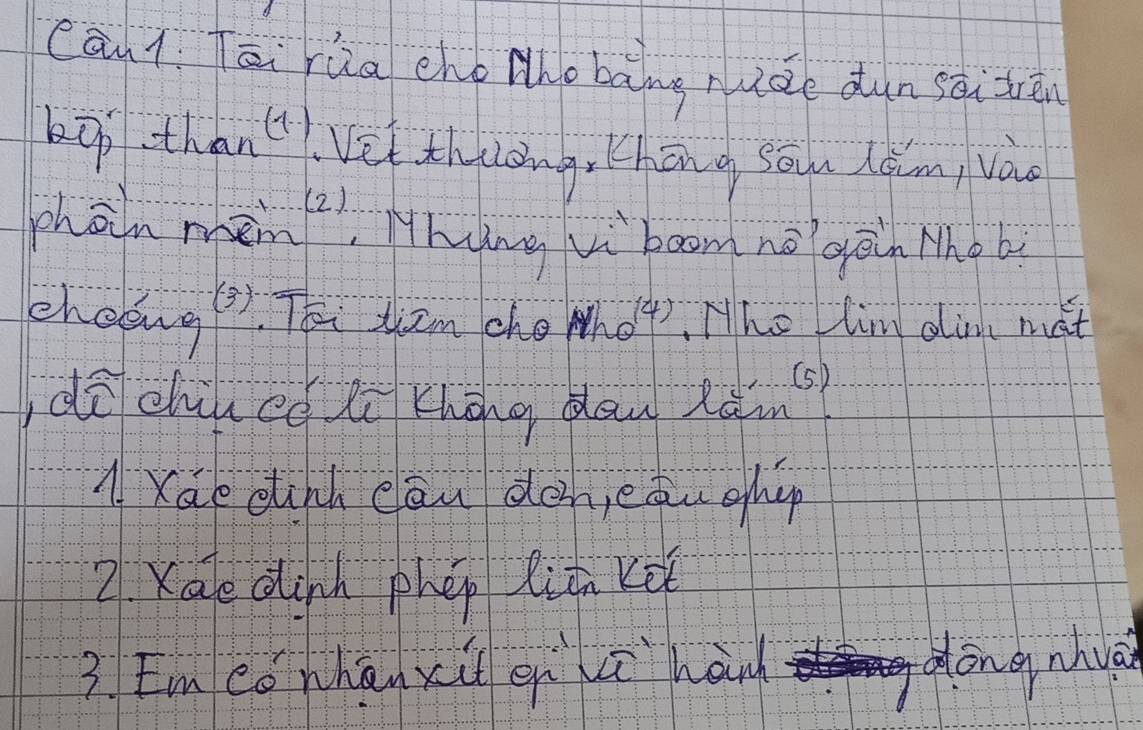 Câu 1. Tôi rửa cho Nho bằng nước đun sôi trên
bếp than (1). Vết thương, không sâu lắm, vào
phần mềm (2). Nhưng vì boom nổ gần Nho bị
choáng (3). Tôi tiêm cho Nho (4). Nho lim dim mắt
, dễ chịu có lẽ không đau lắm (5).
1. Xác định câu đơn, câu ghép
2. Xác định phép liên kết
3. Em có nhận xét gì về hành động nhvật